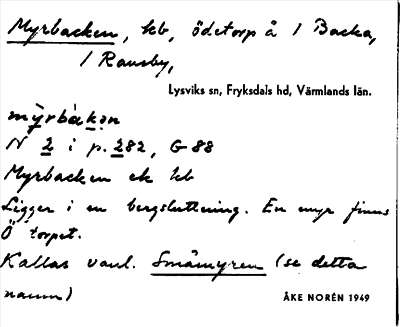 Myrbacken, kb, ödetorp å 1 Backa,
1 Ransby,
Lysviks sn, Fryksdals hd, Värmlands län.
mỳrbàkən
N 2 i p. 282, G 88
Myrbacken ek kb
Ligger i en bergsluttning. En myr finns
Ö torpet.
Kallas vanl. Småmyren (se detta
namn)
ÅKE NORÉN 1949